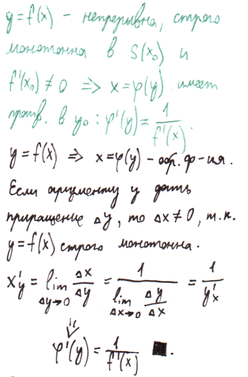 y=f(x) - непрерывна, строго
монотонна в S(x₀) и
f'(x₀)≠0 => x=φ(y) имеет
произв. в y₀: φ'(y)=1/f'(x).
y=f(x) => x=φ(y) - обр. ф-ция.
Если аргументу y дать
приращение Δy, то Δx≠0, т.к.
y=f(x) строго монотонна.
x'y = lim Δy→0 Δx/Δy = 1/(lim Δx→0 Δy/Δx) = 1/y'x
⇓
φ'(y)=1/f'(x) ■.